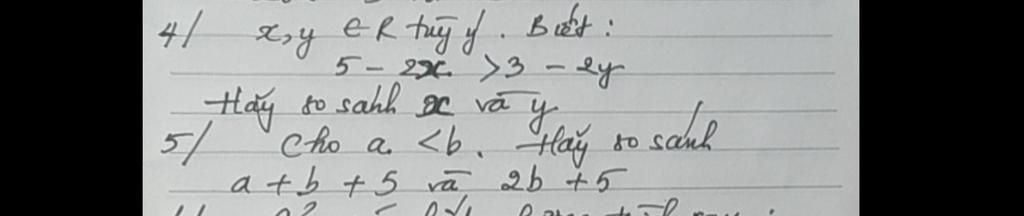 4/ x, y ∈ R tuỳ ý. Biết:
5 - 2x > 3 - 2y
Hãy so sánh x và y
5/ Cho a < b. Hãy so sánh
a + b + 5 và 2b + 5